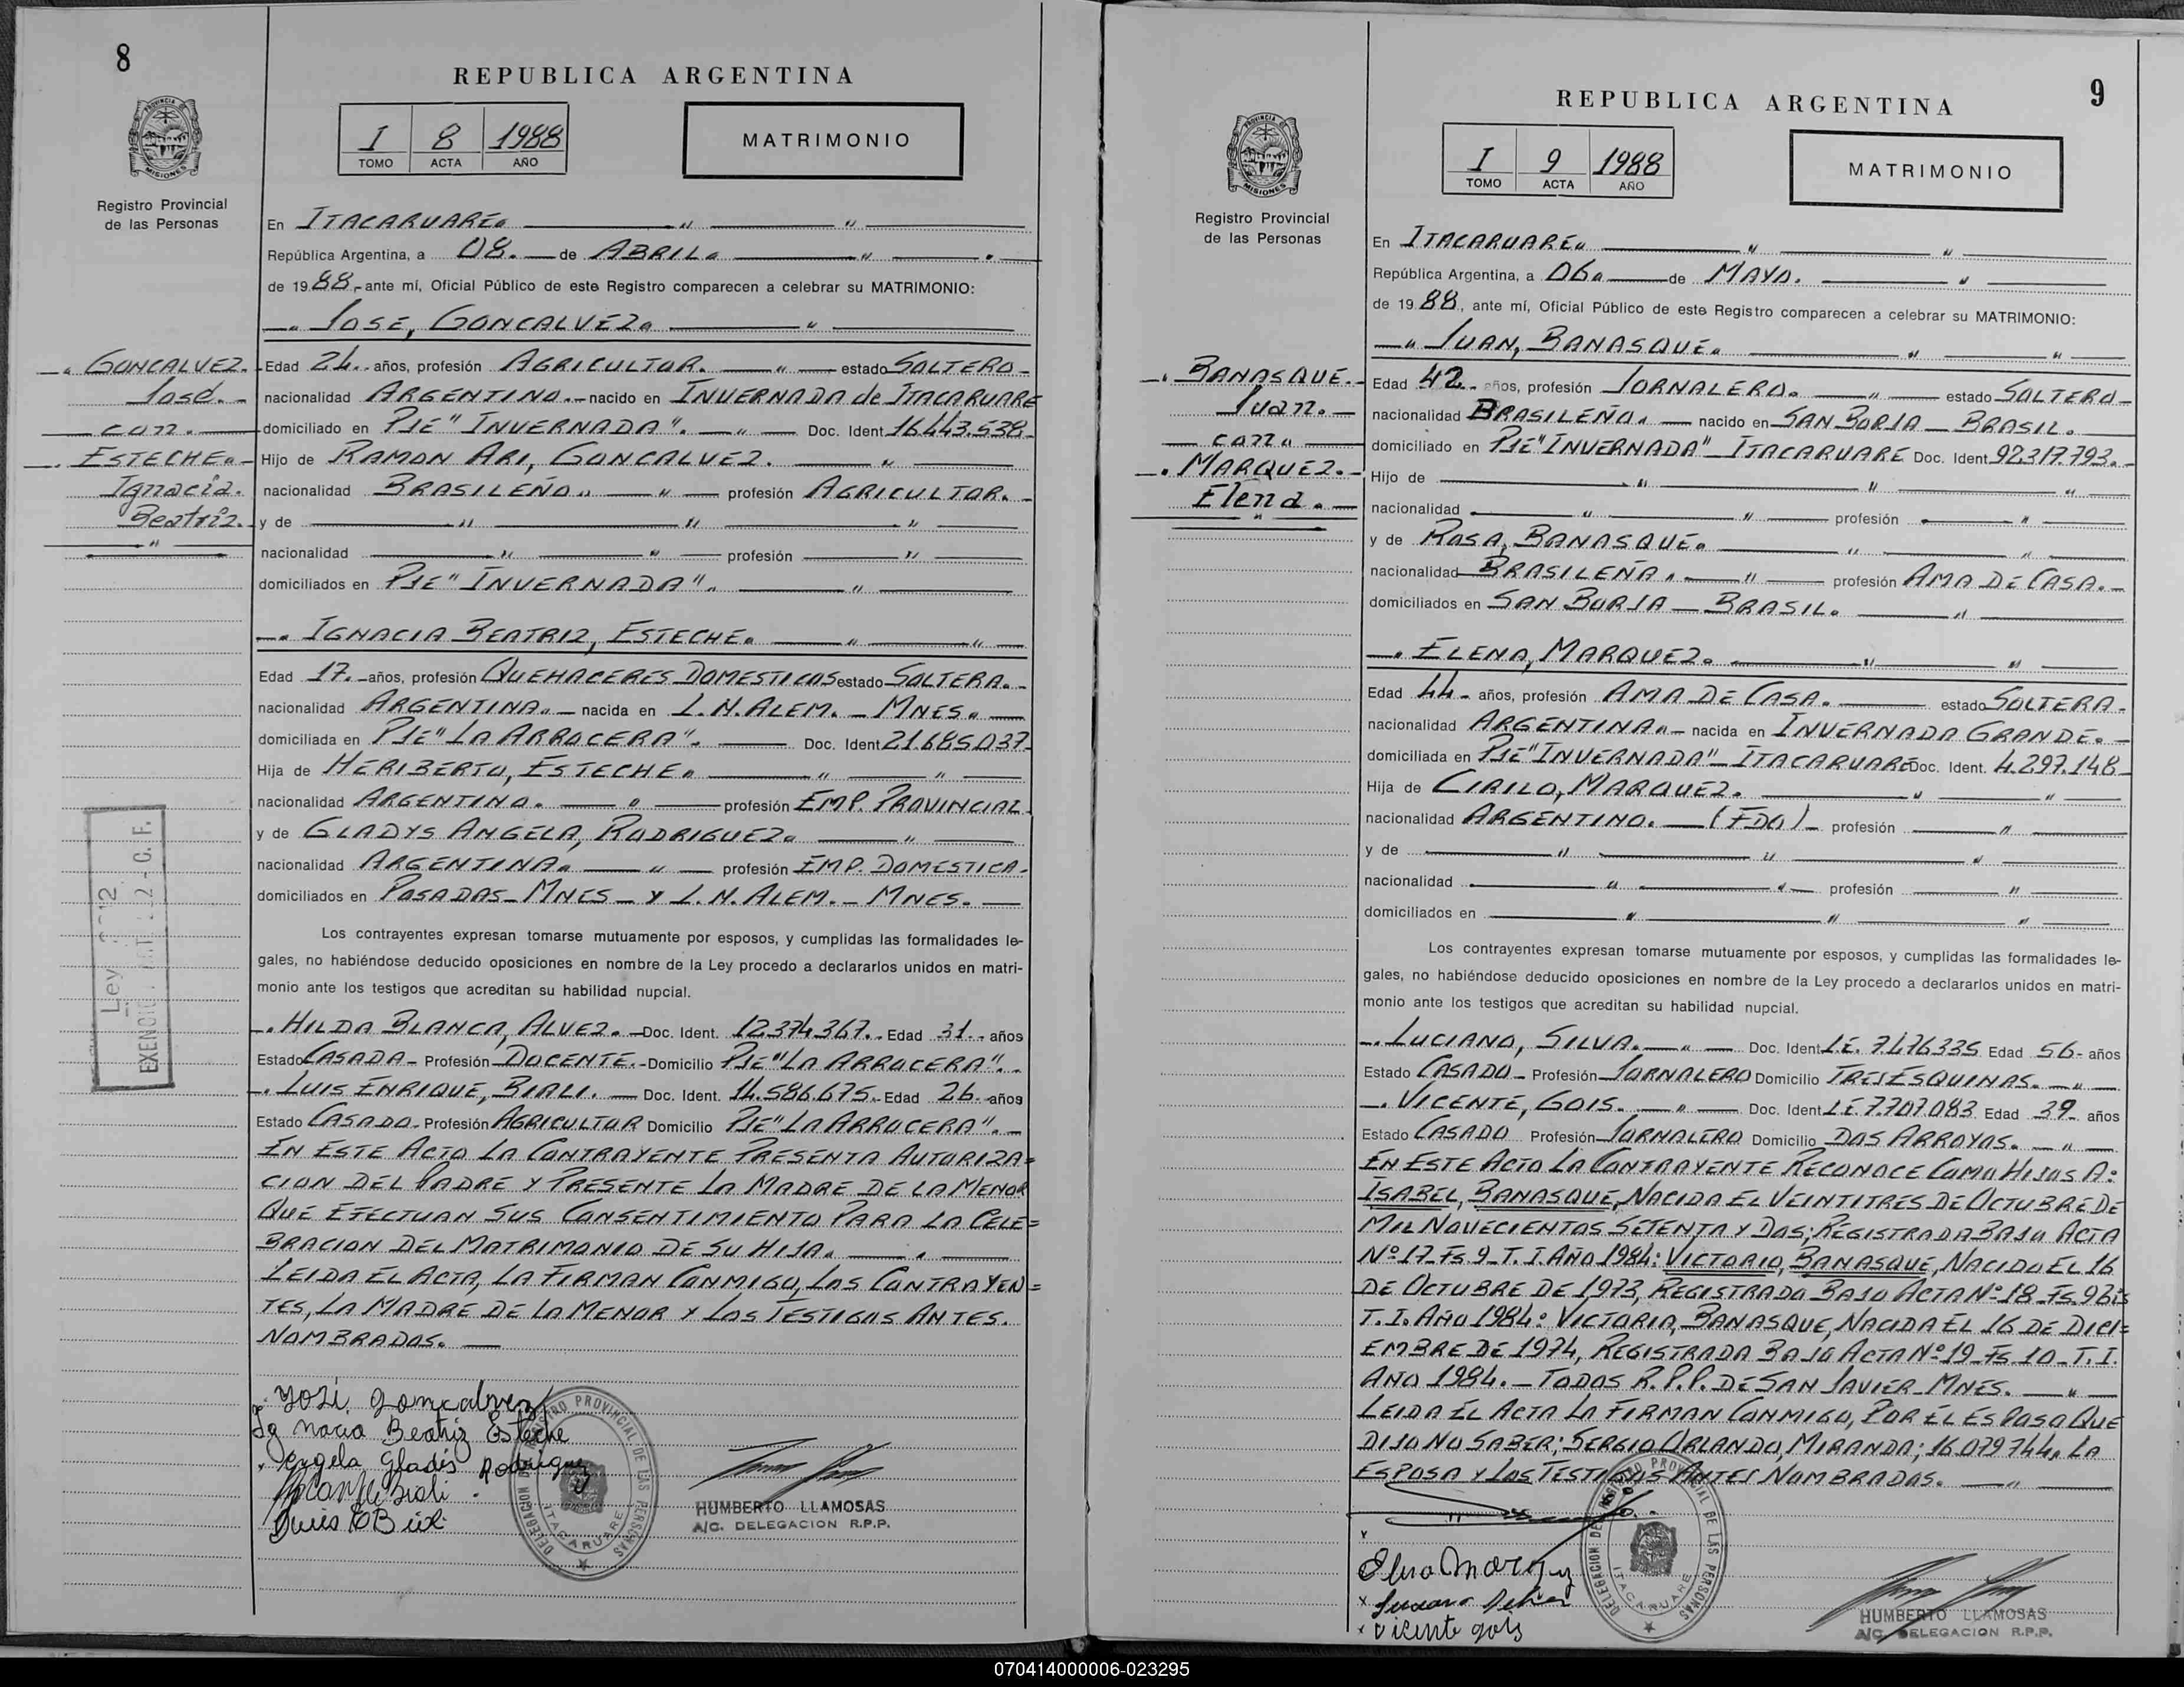 8
REPUBLICA ARGENTINA
I 8 1988
TOMO ACTA AÑO
MATRIMONIO
PROVINCIA DE MISIONES
Registro Provincial
de las Personas
En ITACARUARE.
República Argentina, a 08. de ABRIL.
de 1988.- ante mí, Oficial Público de este Registro comparecen a celebrar su MATRIMONIO:
JOSE, GONCALVEZ.
GONCALVEZ.
José.
con.
ESTECHE.
Ignacia.
Beatriz.
Edad 24. años, profesión AGRICULTOR. estado SOLTERO
nacionalidad ARGENTINO. nacido en INVERNADA de ITACARUARE
domiciliado en PJE "INVERNADA". Doc. Ident 16.443.538
Hijo de RAMON ARI, GONCALVEZ.
nacionalidad BRASILEÑO. profesión AGRICULTOR.
y de
nacionalidad profesión
domiciliados en PJE "INVERNADA".
IGNACIA BEATRIZ, ESTECHE.
Edad 17. años, profesión QUEHACERES DOMESTICOS estado SOLTERA.
nacionalidad ARGENTINA. nacida en L.N.ALEM. - MNES.
domiciliada en PJE "LA ARROCERA". Doc. Ident 21.685.037
Hija de HERIBERTO, ESTECHE.
nacionalidad ARGENTINO. profesión EMP. PROVINCIAL
y de GLADYS ANGELA, RODRIGUEZ.
nacionalidad ARGENTINA. profesión EMP. DOMESTICA.
domiciliados en POSADAS - MNES - Y L.N. ALEM. - MNES.
Los contrayentes expresan tomarse mutuamente por esposos, y cumplidas las formalidades le-
gales, no habiéndose deducido oposiciones en nombre de la Ley procedo a declararlos unidos en matri-
monio ante los testigos que acreditan su habilidad nupcial.
HILDA BLANCA, ALVEZ. Doc. Ident. 12.374.367. Edad 31. años
Estado CASADA - Profesión DOCENTE. - Domicilio PJE "LA ARROCERA".
LUIS ENRIQUE, BIALI. Doc. Ident. 14.586.675. Edad 26. años
Estado CASADO - Profesión AGRICULTOR Domicilio PJE "LA ARROCERA".
EN ESTE ACTO LA CONTRAYENTE PRESENTA AUTORIZA=
CION DEL PADRE Y PRESENTE LA MADRE DE LA MENOR
QUE EFECTUAN SUS CONSENTIMIENTO PARA LA CELE=
BRACION DEL MATRIMONIO DE SU HIJA.
LEIDA EL ACTA, LA FIRMAN CONMIGO, LOS CONTRAYEN=
TES, LA MADRE DE LA MENOR Y LOS TESTIGOS ANTES.
NOMBRADOS.
Ley
Ignacia Beatriz Esteche
Angela Gladis Rodriguez
DELEGACION DEL REGISTRO PROVINCIAL DE LAS PERSONAS
ITACARUARE
HUMBERTO LLAMOSAS
A/C. DELEGACION R.P.P.
9
REPUBLICA ARGENTINA
I 9 1988
TOMO ACTA AÑO
MATRIMONIO
PROVINCIA DE MISIONES
Registro Provincial
de las Personas
En ITACARUARE.
República Argentina, a 06. de MAYO.
de 1988, ante mí, Oficial Público de este Registro comparecen a celebrar su MATRIMONIO:
JUAN, BANASQUE.
BANASQUE.
Juan.
con.
MARQUEZ.
Elena.
Edad 42. años, profesión JORNALERO. estado SOLTERO
nacionalidad BRASILEÑO. nacido en SAN BORJA - BRASIL.
domiciliado en PJE "INVERNADA" - ITACARUARE Doc. Ident 92.317.793.
Hijo de
nacionalidad profesión
y de ROSA, BANASQUE.
nacionalidad BRASILEÑA. profesión AMA DE CASA.
domiciliados en SAN BORJA - BRASIL.
ELENA, MARQUEZ.
Edad 44 años, profesión AMA DE CASA. estado SOLTERA.
nacionalidad ARGENTINA. nacida en INVERNADA GRANDE.
domiciliada en PJE "INVERNADA" - ITACARUARE Doc. Ident. 4.297.148
Hija de CIRILO, MARQUEZ.
nacionalidad ARGENTINO. (FDO) profesión
y de
nacionalidad profesión
domiciliados en
Los contrayentes expresan tomarse mutuamente por esposos, y cumplidas las formalidades le-
gales, no habiéndose deducido oposiciones en nombre de la Ley procedo a declararlos unidos en matri-
monio ante los testigos que acreditan su habilidad nupcial.
LUCIANO, SILVA. Doc. Ident L.E. 7.476.335 Edad 56 años
Estado CASADO - Profesión JORNALERO Domicilio TRES ESQUINAS.
VICENTE, GOIS. Doc. Ident L.E. 7.707.083 Edad 39 años
Estado CASADO Profesión JORNALERO Domicilio DOS ARROYOS.
EN ESTE ACTO LA CONTRAYENTE RECONOCE COMO HIJOS A:
ISABEL, BANASQUE, NACIDA EL VEINTITRES DE OCTUBRE DE
MIL NOVECIENTOS SETENTA Y DOS; REGISTRADA BAJO ACTA
Nº 17 - Fs 9 - T. I. AÑO 1984: VICTORIO, BANASQUE, NACIDO EL 16
DE OCTUBRE DE 1973, REGISTRADO BAJO ACTA Nº 18 Fs 9 bis
T. I. AÑO 1984: VICTORIA, BANASQUE, NACIDA EL 16 DE DICI=
EMBRE DE 1974, REGISTRADA BAJO ACTA Nº 19 - Fs 10 - T. I.
AÑO 1984. - TODOS R.P.P. DE SAN JAVIER - MNES.
LEIDA EL ACTA LA FIRMAN CONMIGO, POR EL ESPOSO QUE
DIJO NO SABER; SERGIO ORLANDO, MIRANDA; 16.079.744, LA
ESPOSA Y LOS TESTIGOS ANTES NOMBRADOS.
vicente gois
DELEGACION DEL REGISTRO PROVINCIAL DE LAS PERSONAS
ITACARUARE
HUMBERTO LLAMOSAS
A/C DELEGACION R.P.P.
070414000006-023295